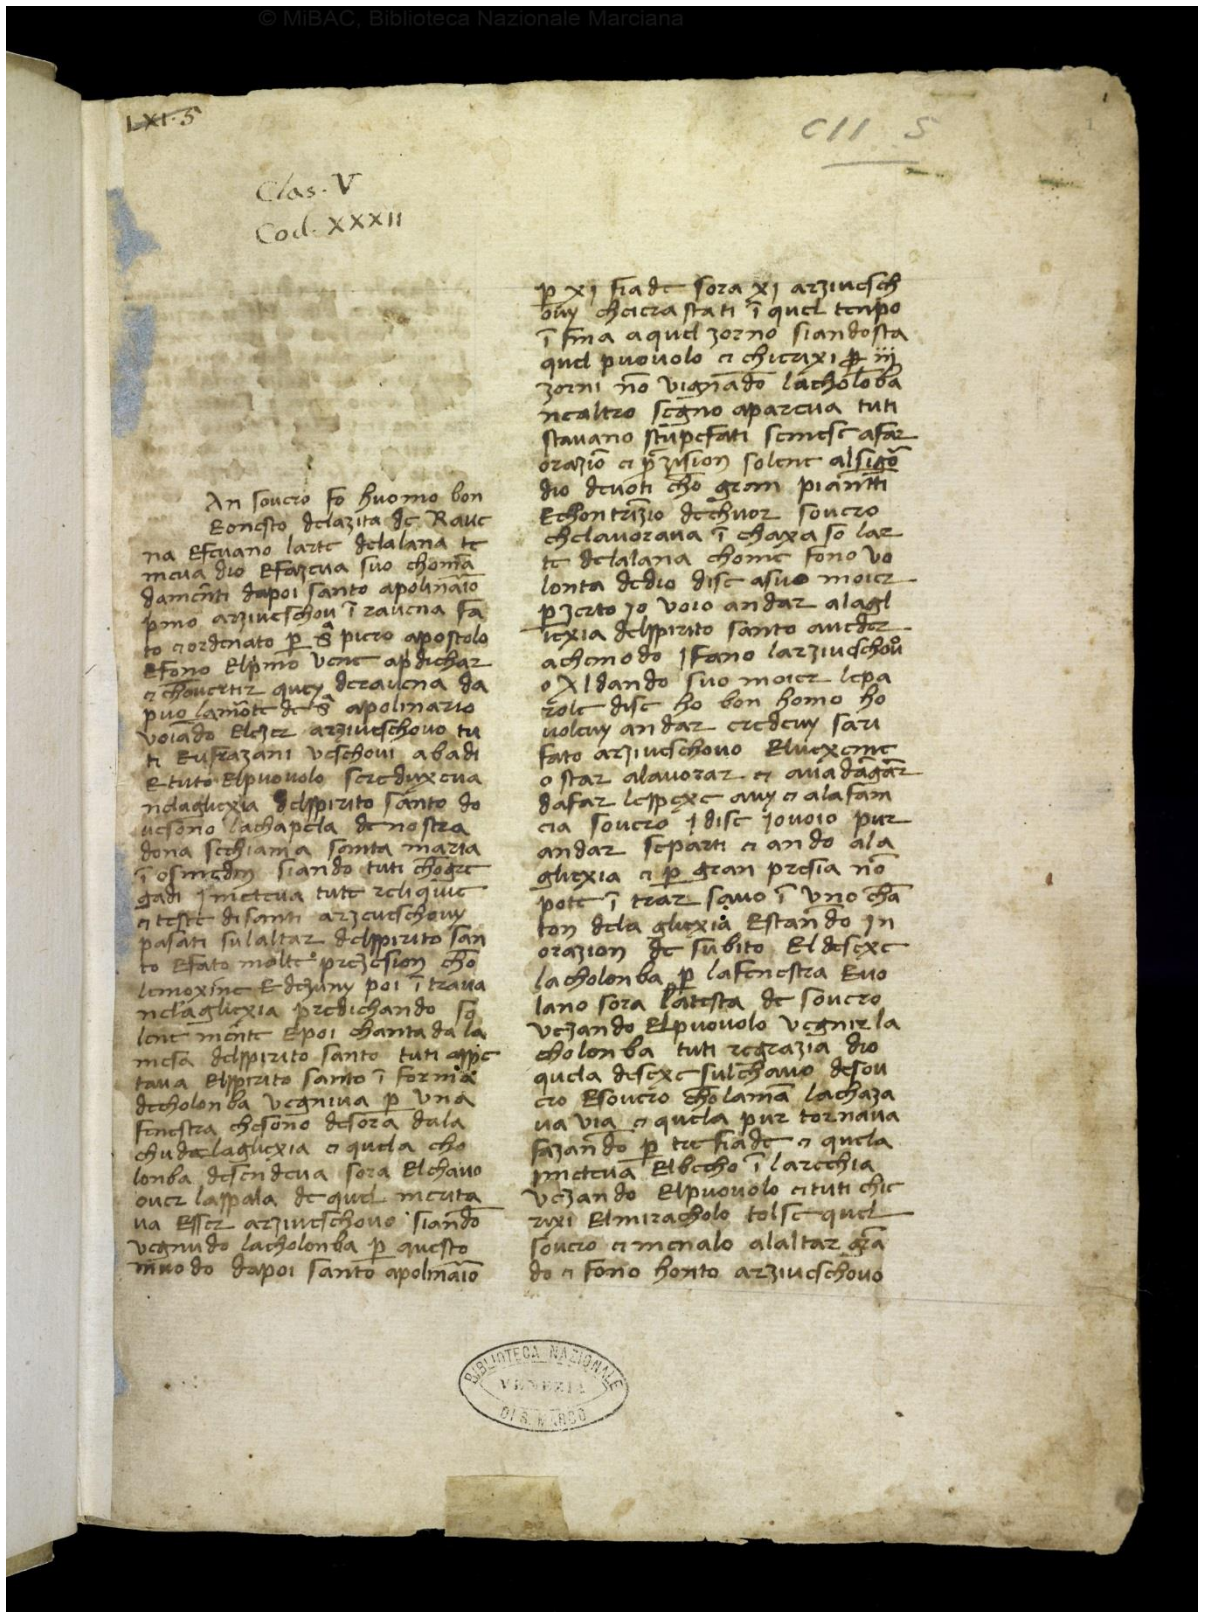 © MiBAC, Biblioteca Nazionale Marciana
LXI.5
CII 5
1
Clas. V
Cod. XXXII
An souero fo huomo bon
Eonesto delazita de Raue
na Efeuano larte delalana te
meua dio Efazeua suo chomā
damenti dapoi santo apolināio
pmo arziueschou ī rauena fa
to ci ordenato p̄ s̄ piero apostolo
Efono Elpmō uene apdichar
ci chouertir quey derauena da
puo lamōte de s̄ apolinario
uoiado Elezer arziueschouo tu
ti Eufrazani ueschoui abadi
Etuto Elpuouolo sereduxeua
nelagliexia delspirito santo do
uesono lachapela de nostra
dona sechiama santa maria
ī osmedin siando tuti chōgre
gadi J meteua tute reliquie
ci teste di santi arzeueschouy
pasati sulaltar delspirito san
to Efato molte prezesion chō
lemoxine Edezuny poi ī traua
nelagliexia predichando so
lene mente Epoi chantada la
mesa delspirito santo tuti aspe
taua Elspirito santo ī forma
decholonba uegniua p̄ una
fenestra chesono desora dela
chudelagliexia ci quela cho
lonba desendeua sora Elchauo
ouer laspala de quel merita
ua Esser arziueschouo siando
uegnudo lacholonba p̄ questo
muodo dapoi santo apolināio
p̄ XJ fiade sora XJ arziuesch
ouy cheiera stati ī quel tenpo
ī fina aquel zorno siandosta
quel puouolo ci chierixi p̄ iij
zorni nō uignādo lacholōba
nealtro segno apareua tuti
stauano stupefati semese afar
orazio ci p̄zision solene alsigō
dio deuoti chō gram piantti
Echontrizio dechuor souero
chelauoraua ī chaxa so lar
te delalana chome fono uo
lonta dedio dise asuo moier
p̄ zerto Jo uoio andar alagl
iexia delspirito santo aueder
achemodo J fano larziueschouo
o XI dando suo moier lepa
role dise ho bon homo ho
uoleuy andar credeuy sari
fato arziueschouo Eluexeme
o star alauorar ci auiadagar
dafar lespexe auy ci alafam
eia souero J dise Jouoio pur
andar separti ci ando ala
gliexia ci p̄ gran presia nō
pote ī trar sauo ī uno chā
ton dela gliexia Estando Jn
orazion de subito Eldesexe
lacholonba p̄ lafenestra Euo
lano sora latesta de souero
uezando Elpuouolo uegnir la
cholonba tuti regrazia dio
quela desexe sulchauo desou
ero Esouero cholamā lachaza
ua uia ci quela pur tornaua
fazando p̄ tre fiade ci quela
J meteua Elbecho ī larechia
uezando Elpuouolo ci tuti chie
rixi Elmiracholo tolse quel
souero ci menalo alaltar grā
do ci fono honto arziueschouo
BIBLIOTECA NAZIONALE
VENEZIA
DI S. MARCO